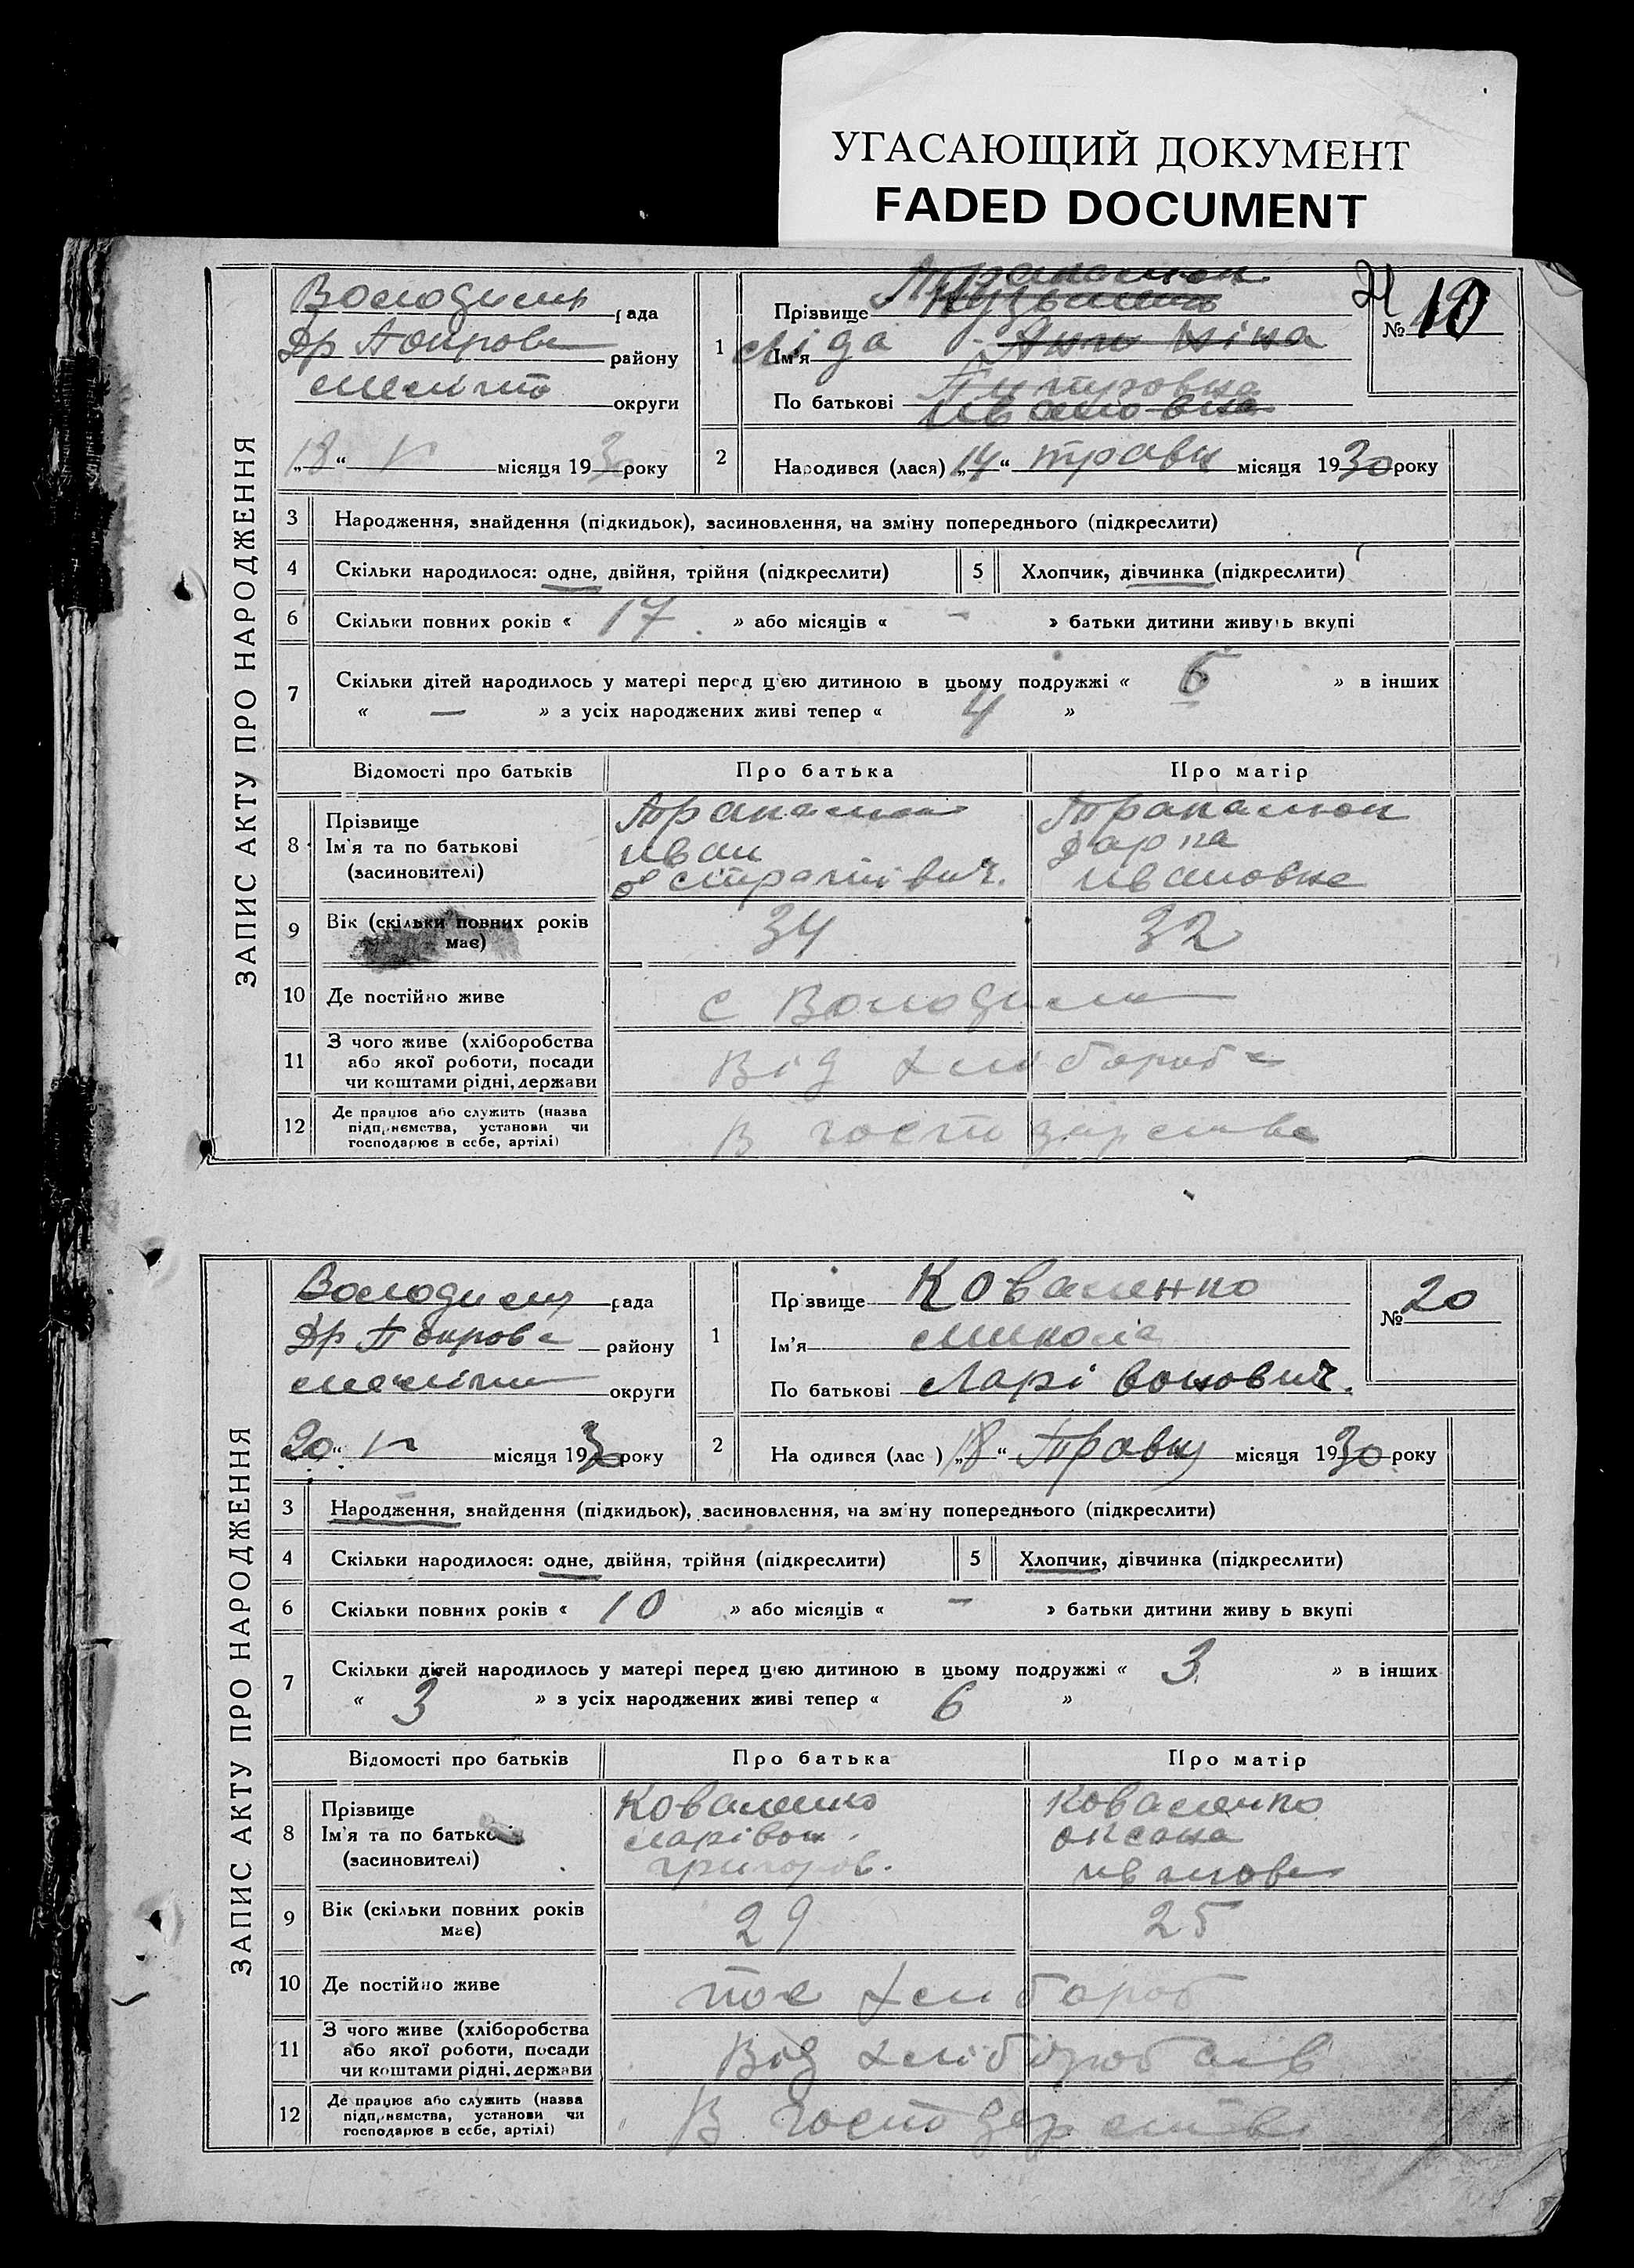 УГАСАЮЩИЙ ДОКУМЕНТ
FADED DOCUMENT
ЗАПИС АКТУ ПРО НАРОДЖЕННЯ
Володимир рада
району
округи
"18" V місяця 1930 року
1
Прізвище
Ім'я Ліда
По батькові Ивановна
№ 19
2
Народився (лася) "14" травн місяця 1930 року
3 Народження, знайдення (підкидьок), засиновлення, на зміну попереднього (підкреслити)
4 Скільки народилося: одне, двійня, трійня (підкреслити) 5 Хлопчик, дівчинка (підкреслити)
6 Скільки повних років « 17 » або місяців « - » батьки дитини живуть вкупі
7 Скільки дітей народилось у матері перед цією дитиною в цьому подружжі « 6 » в інших
« — » з усіх народжених живі тепер « 4 »
Відомості про батьків Про батька Про матір
8 Прізвище
Ім'я та по батькові
(засиновителі)
Иван
Дарпа
Ивановна
9 Вік (скільки повних років має) 34 32
10 Де постійно живе с Володими
11 З чого живе (хліборобства
або якої роботи, посади
чи коштами рідні, держави
Від хлібороб
12 Де працює або служить (назва
підприємства, установи чи
господарює в себе, артілі)
В
ЗАПИС АКТУ ПРО НАРОДЖЕННЯ
Володими рада
району
округи
"20" V місяця 1930 року
1
Прізвище Коваленко
Ім'я Микола
По батькові Ларівонович.
№ 20
2
Народився (лас ) "18" Травн місяця 1930 року
3 Народження, знайдення (підкидьок), засиновлення, на зміну попереднього (підкреслити)
4 Скільки народилося: одне, двійня, трійня (підкреслити) 5 Хлопчик, дівчинка (підкреслити)
6 Скільки повних років « 10 » або місяців « - » батьки дитини живу ь вкупі
7 Скільки дітей народилось у матері перед цією дитиною в цьому подружжі « 3 » в інших
« 3 » з усіх народжених живі тепер « 6 »
Відомості про батьків Про батька Про матір
8 Прізвище
Ім'я та по батькові
(засиновителі)
Коваленко
Ларівон
Григоров.
Коваленко
Оксана
Иванов
9 Вік (скільки повних років має) 29 25
10 Де постійно живе
11 З чого живе (хліборобства
або якої роботи, посади
чи коштами рідні, держави
Від
12 Де працює або служить (назва
підприємства, установи чи
господарює в себе, артілі)
В